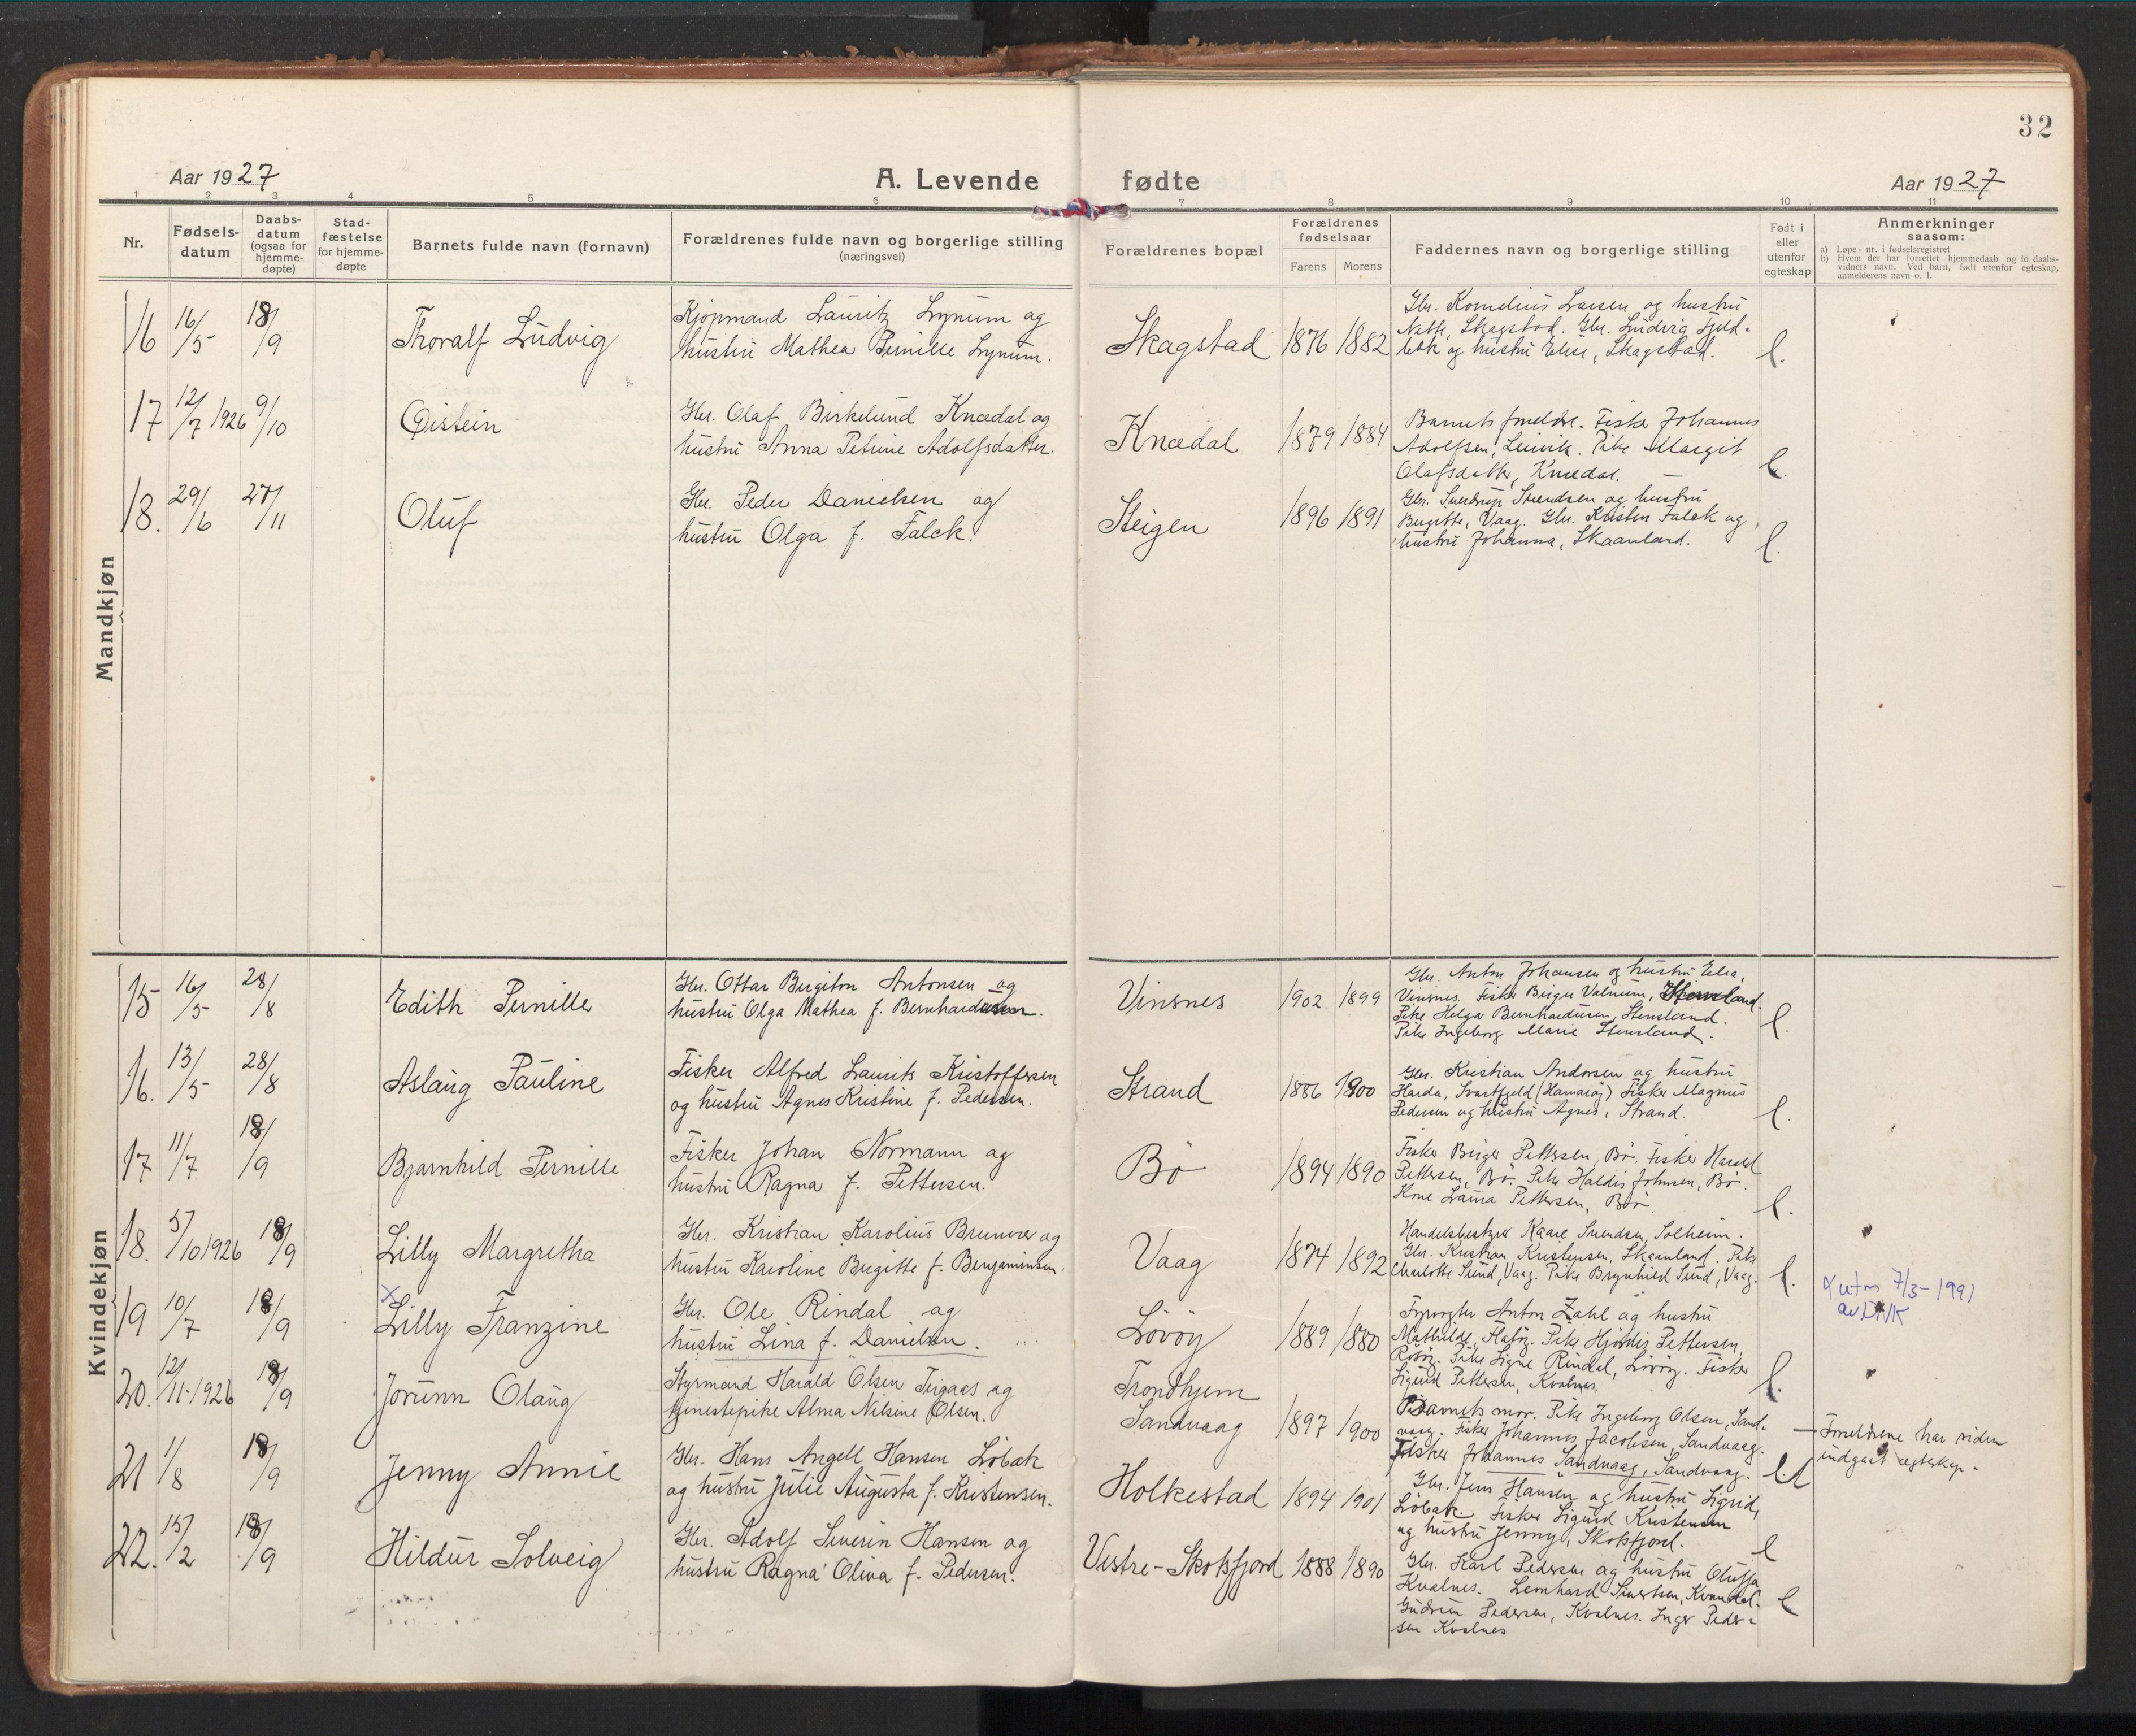 32
Aar 1927
A. Levende fødte
Aar 1927
1 2 3 4 5 6 7 8 9 10 11
Nr.
Fødsels-
datum
Daabs-
datum
(ogsaa for
hjemme-
døpte)
Stad-
fæstelse
for hjemme-
døpte
Barnets fulde navn (fornavn)
Forældrenes fulde navn og borgerlige stilling
(næringsvei)
Forældrenes bopæl
Forældrenes
fødselsaar
Farens Morens
Faddernes navn og borgerlige stilling
Født i
eller
utenfor
egteskap
Anmerkninger
saasom:
a) Løpe-nr. i fødselsregistret
b) Hvem der har forrettet hjemmedaab og to daabs-
vidners navn. Ved barn, født utenfor egteskap,
anmelderens navn o. l.
Mandkjøn
16 16/5 18/9
Thoralf Ludvig
Kjøpmand Lauritz Lynum og
hustru Mathea Pernille Lynum.
Skagstad 1876 1882
Gbr. Kornelius Larsen og hustru
Skagstad. Gbr. Ludvig Fjeld-
bakk og hustru Elise, Skagstad.
l.
17 12/7 1926 9/10
Øistein
Gbr. Olaf Birkelund Knædal og
hustru Anna Petrine Adolfsdatter.
Knædal 1879 1884
Barnets foreldre. Fisker Johannes
Adolfsen, Leivik. Pike Margit
Olafsdatter, Knædal.
l.
18. 29/6 27/11
Oluf
Gbr. Peder Danielsen og
hustru Olga f. Falck.
Steigen 1896 1891
Gbr. Sverdrup Svendsen og hustru
Birgitte, Vaag. Gbr. Kristen Falck og
hustru Johanna, Skaanland.
l.
Kvindekjøn
15 16/5 28/8
Edith Pernille
Gbr. Ottar Birgiton Antonsen og
hustru Olga Mathea f. Bernhardussen.
Vinsnes 1902 1899
Gbr. Anton Johansen og hustru Elea,
Vinsnes. Fisker Birger Valnum,
Pike Helga Bernhardusen, Stensland.
Pike Ingeborg Marie Stensland.
l.
16. 13/5 28/8
Aslaug Pauline
Fisker Alfred Laurits Kristoffersen
og hustru Agnes Kristine f. Pedersen.
Strand 1886 1900
Gbr. Kristian Andorsen og hustru
Harda, Svartfjeld (Hamarøy) Fisker Magnus
Pedersen og hustru Agnes, Strand.
l.
17 11/7 18/9
Bjarnhild Pernille
Fisker Johan Normann og
hustru Ragna f. Pettersen.
Bö 1894 1890
Fisker Birger Pettersen, Bö. Fisker Harald
Pettersen, Bö. Pike Haldis Johnsen, Bö.
Kone Laura Pettersen, Bö.
l.
18. 5/10 1926 18/9
Lilly Margretha
Gbr. Kristian Karolius Brunvær og
hustru Karoline Birgitte f. Benjaminsen.
Vaag 1874 1892
Handelsbestyrer Kaare Svendsen, Solheim.
Gbr. Kristian Kristensen, Skaanland. Pike
Charlotte Sund, Vaag. Pike Brynhild Sund, Vaag.
l.
x
19 10/7 18/9
Lilly Franzine
Gbr. Ole Rindal og
hustru Lina f. Danielsen.
Lövöy 1889 1880
Fyrvogter Anton Zahl og hustru
Mathilde, Flatøy. Pike Hjördis Pettersen,
Pike Signe Rindal, Lövöy. Fisker
Sigurd Pettersen, Kvalnes
l.
utm 7/3-1991
av DNK
20. 12/11-1926 18/9
Jorunn Olaug
Styrmand Harald Olsen Tigaas og
tjenestepike Alma Nilsine Olsen.
Trondhjem
Sandvaag 1897 1900
Barnets mor. Pike Ingeborg Olsen, Sand-
vaag. Fisker Johannes Jacobsen, Sandvaag.
Fisker Johannes Sandvaag, Sandvaag.
— Foreldrene har siden
indgaat egteskap.
21 1/8 18/9
Jenny Annie
Gbr. Hans Angell Hansen Löbak
og hustru Julie Augusta f. Kristensen.
Holkestad 1894 1901
Gbr. Jens Hansen og hustru Sigrid,
Löbak. Fisker Sigurd Kristensen
og hustru Jenny, Skotsfjord.
l
22. 15/2 18/9
Hildur Solveig
Gbr. Adolf Severin Hansen og
hustru Ragna Oliva f. Pedersen.
Vestre-Skotsfjord 1888 1890
Gbr. Karl Pedersen og hustru Oluffa
Kvalnes. Leonhard Sivertsen, Kvandal.
Gudrun Pedersen, Kvalnes. Inger Peder-
sen Kvalnes
l